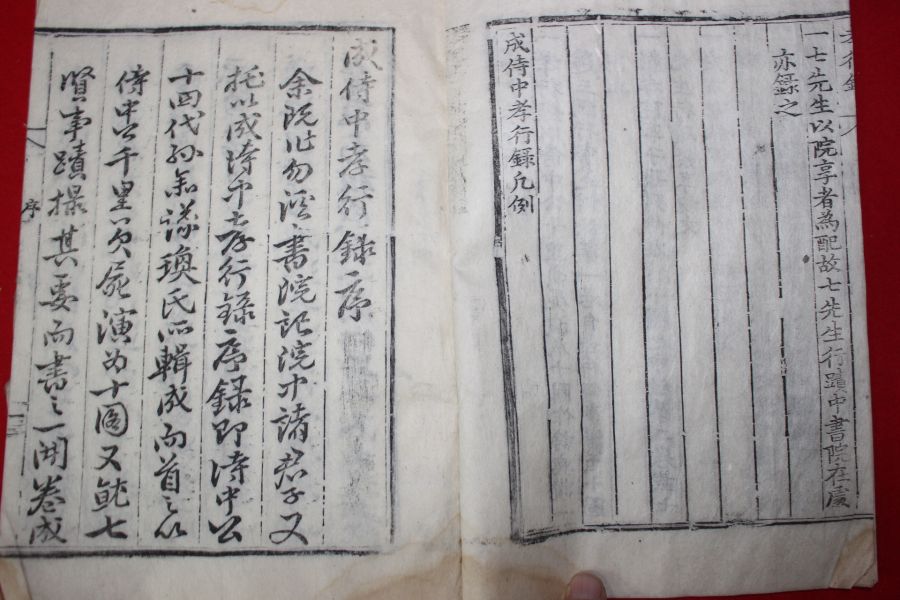 一七先生以院享者為配故七先生行蹟中書院在處
亦錄之
成侍中孝行錄凡例
成侍中孝行録序
余既作勿溪書院記院中諸君子又
托以成侍中孝行録序録即侍中公
十四代孫 璞氏所輯成而首之以
侍中公千里 屍演為十圖又 七
賢事蹟撮其要而書之一開卷成
序